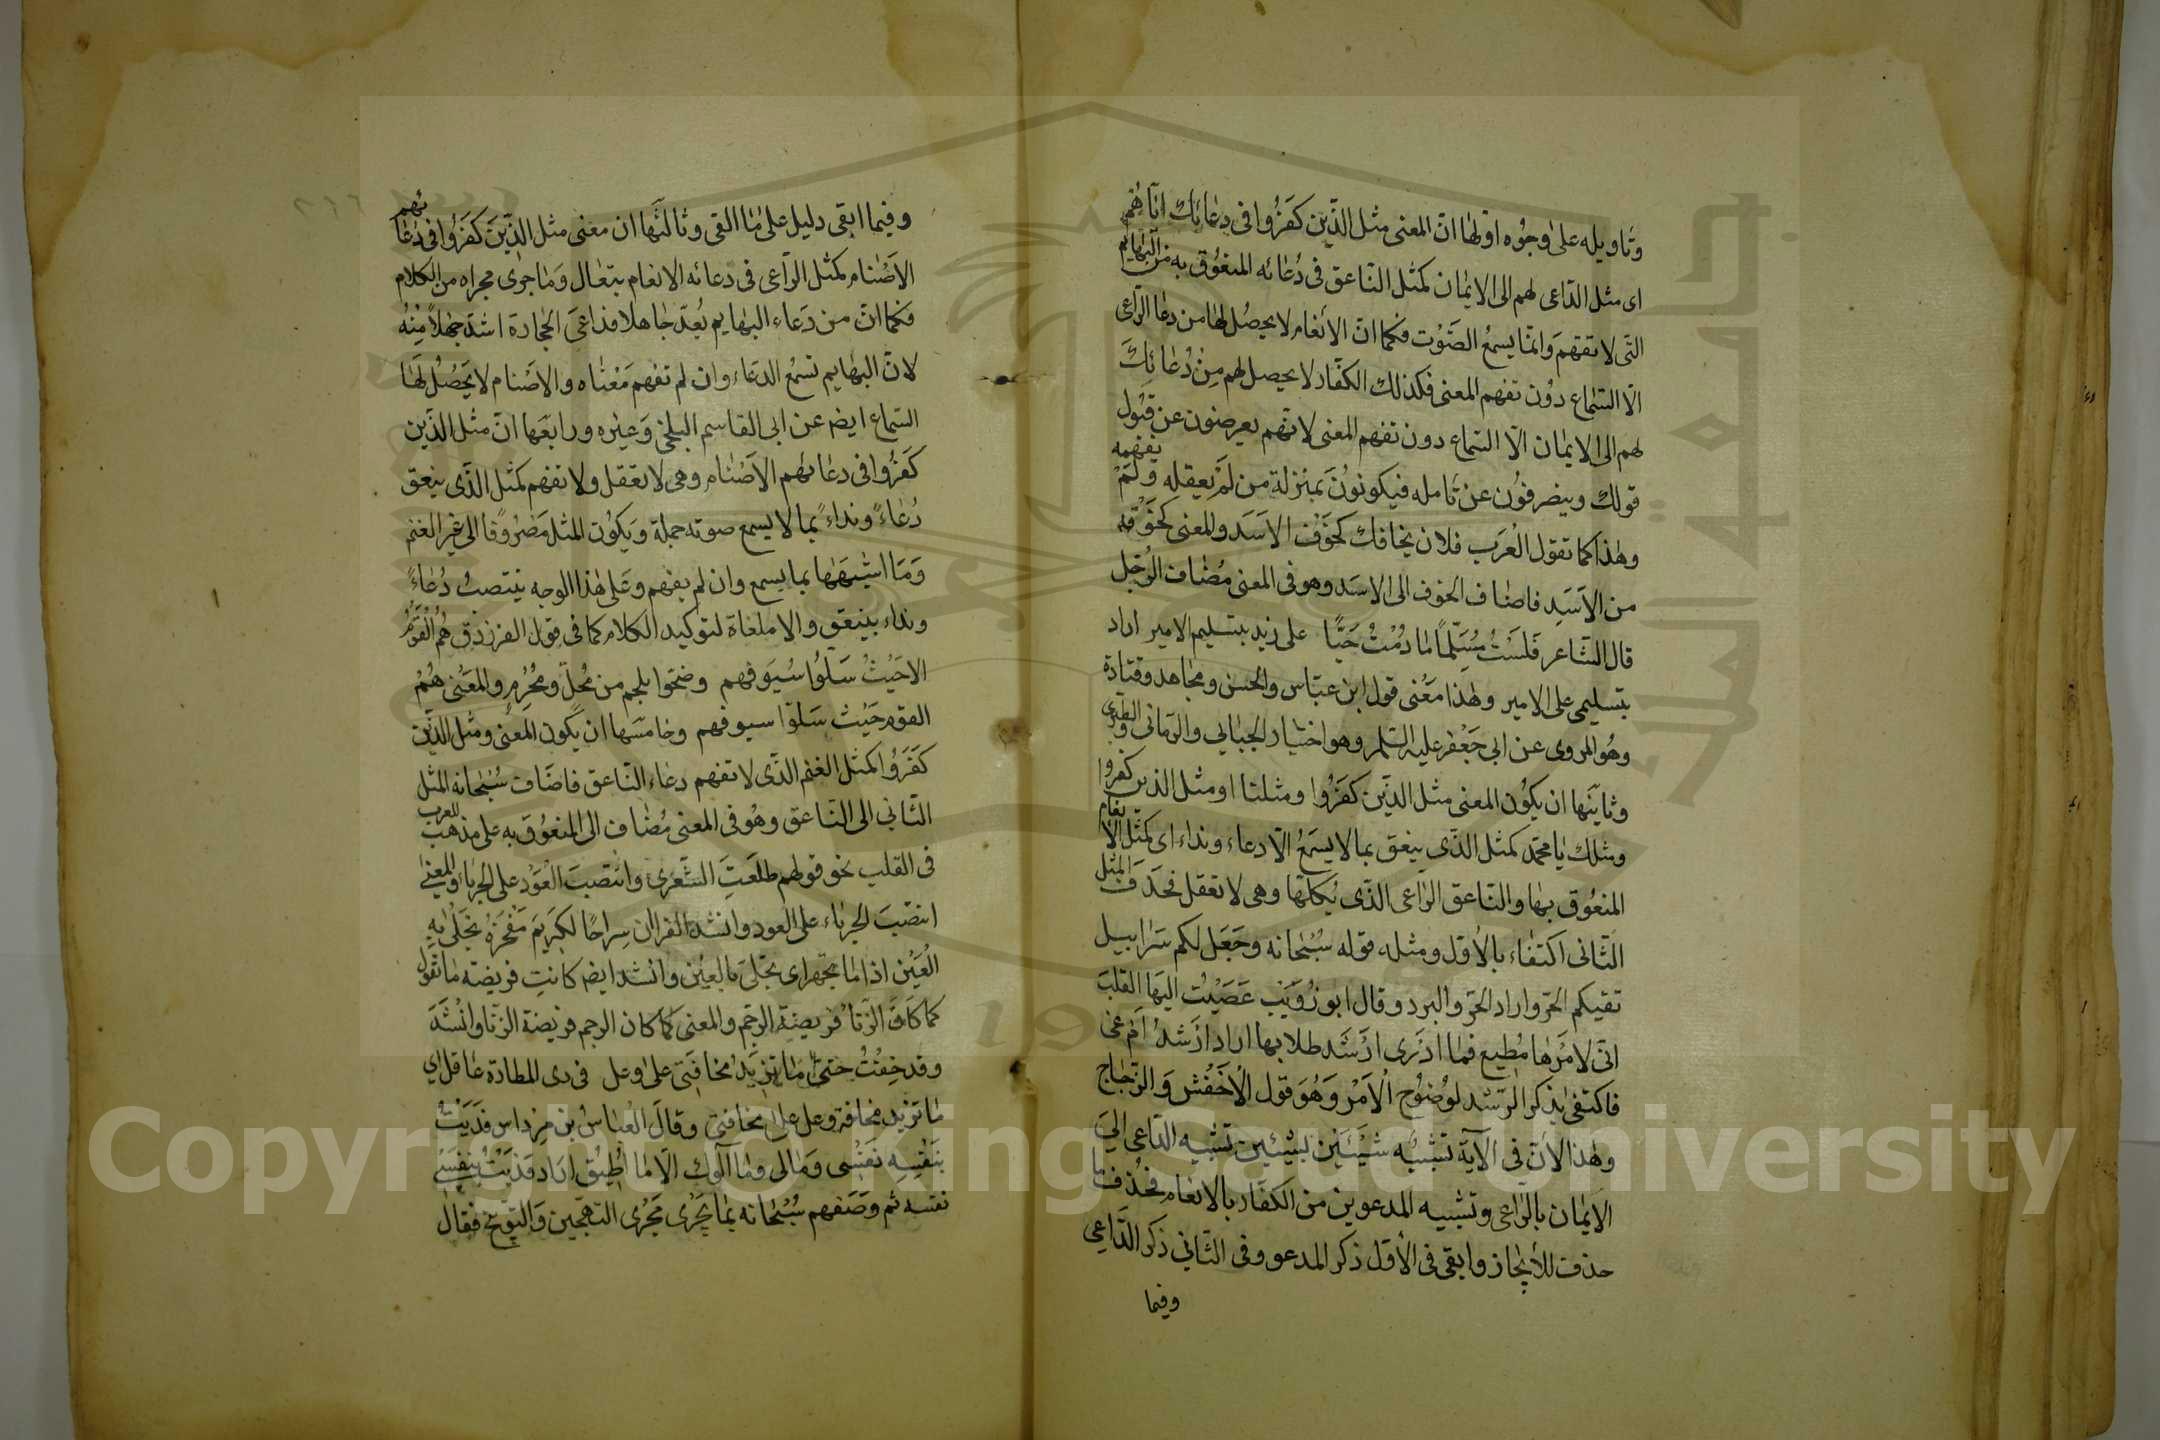 وتاويله على وجوه اولها ان المعنى مثل الذين كفروا فى دعائك اياهم
اى مثل الداعى لهم الى الايمان كمثل الناعق فى دعائه المنعوق به من البهايم
التى لا تفهم وانما يسمع الصوت فكما ان الانعام لا يحصل لها من دعا الراعى
الا السماع دون تفهم المعنى فكذلك الكفار لا يحصل لهم من دعائك
لهم الى الايمان الا السماع دون تفهم المعنى لانهم يعرضون عن قبول
قولك وينصرفون عن تامله فيكونون بمنزلة من لم يعقله ولم يفهمه
وهذا كما تقول العرب فلان يخافك كخوف الاسد والمعنى كخوفه
من الاسد فاضاف الخوف الى الاسد وهو فى المعنى مضاف الى الرجل
قال الشاعر فلست مسلما ما دمت حيا على زيد بتسليم الامير اراد
بتسليمى على الامير وهذا معنى قول ابن عباس والحسن ومجاهد وقتادة
وهو المروى عن ابى جعفر عليه السلم وهو اختيار الجبائي والرمانى والطبرى
وثانيها ان يكون المعنى مثل الذين كفروا ومثلنا او مثل الذين كفروا
ومثلك يا محمد كمثل الذى ينعق بما لا يسمع الا دعاء ونداء اى كمثل الانعام
المنعوق بها والناعق الراعى الذى يكلمها وهى لا تعقل فحذف المثل
الثانى اكتفاء بالاول ومثله قوله سبحانه وجعل لكم سرابيل
تقيكم الحر واراد الحر والبرد وقال ابو ذويب عصيت اليها القلب
انى لامرها مطيع فما ادرى ارشد طلابها اراد ارشد ام غى
فاكتفى بذكر الرشد لوضوح الامر وهو قول الاخفش والزجاج
وهذا لان فى الآية تشبيه شيئين بشيئين تشبيه الداعى الى
الايمان بالراعى وتشبيه المدعوين من الكفار بالانعام فحذف ما
حذف للايجاز وابقى فى الاول ذكر المدعو وفى الثاني ذكر الداعى
وفيما
وفيما ابقى دليل على ما القى وثالثها ان معنى مثل الذين كفروا فى دعائهم
الاصنام كمثل الراعى فى دعائه الانعام بتعال وما جرى مجراه من الكلام
فكما ان من دعاء البهايم يعد جاهلا فداعى الحجارة اشد جهلا منه
لان البهايم تسمع الدعاء وان لم تفهم معناه والاصنام لا يحصل لها
السماع ايضا عن ابى القاسم البلخى وغيره ورابعها ان مثل الذين
كفروا فى دعائهم الاصنام وهى لا تعقل ولا تفهم كمثل الذى ينعق
دعاء ونداء بما لا يسمع صوته جملة ويكون المثل مصروفا الى غير الغنم
وما اشبهها بما يسمع وان لم يفهم وعلى هذا الوجه ينتصب دعاء
ونداء بينعق والا ملغاة لتوكيد الكلام كما فى قول الفرزدق هم القوم
الا حيث سلوا سيوفهم وضحوا بلحم من محل ومحرم والمعنى هم
القوم حيث سلوا سيوفهم وخامسها ان يكون المعنى ومثل الذين
كفروا كمثل الغنم الذى لا تفهم دعاء الناعق فاضاف سبحانه المثل
الثاني الى الناعق وهو فى المعنى مضاف الى المنعوق به على مذهب العرب
فى القلب نحو قولهم طلعت الشعرى وانتصب العود على الحرباء والمعنى
انتصب الحرباء على العود وانشد الفراء ان سراجا لكريم مفخره تحلى به
العين اذا ما تجهره اى تحلى بالعين وانشد ايضا كانت فريضة ما تقول
كما كان الزنا فريضة الرجم والمعنى كما كان الرجم فريضة الزنا وانشد
وقد خفت حتى ما تزيد مخافتى على وعل فى ذى المطارة عاقل اى
ما تزيد مخافة وعل على مخافتى وقال العباس بن مرداس فديت
بنفسه نفسى ومالى وما آلوك الا ما اطيق اراد فديت بنفسى
نفسه ثم وصفهم سبحانه بما يجرى مجرى التهجين والتوبيخ فقال